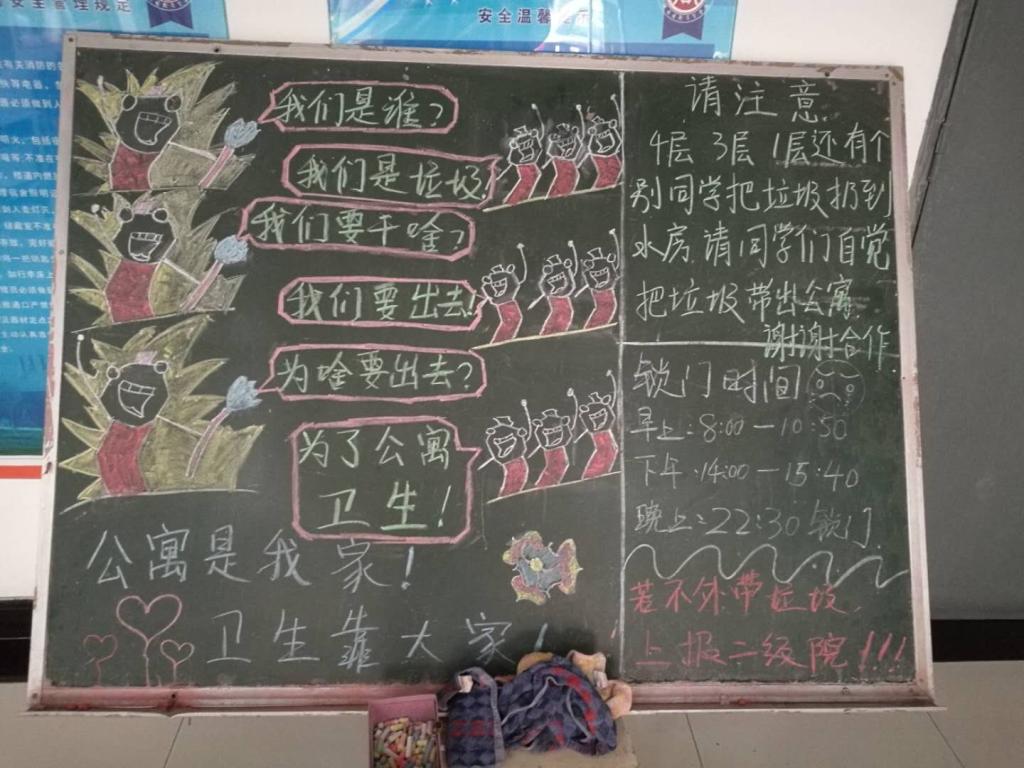 安全管理规定
安全温馨提示
我们是谁?
我们是垃圾!
我们要干啥?
我们要出去!
为啥要出去?
为了公寓
卫生!
公寓是我家!
卫生靠大家!
请注意
4层3层1层还有个
别同学把垃圾扔到
水房.请同学们自觉
把垃圾带出公寓.
谢谢合作
锁门时间
早上:8:00—10:50
下午:14:00—15:40
晚上:22:30锁门
若不外带垃圾,
上报二级院!!!